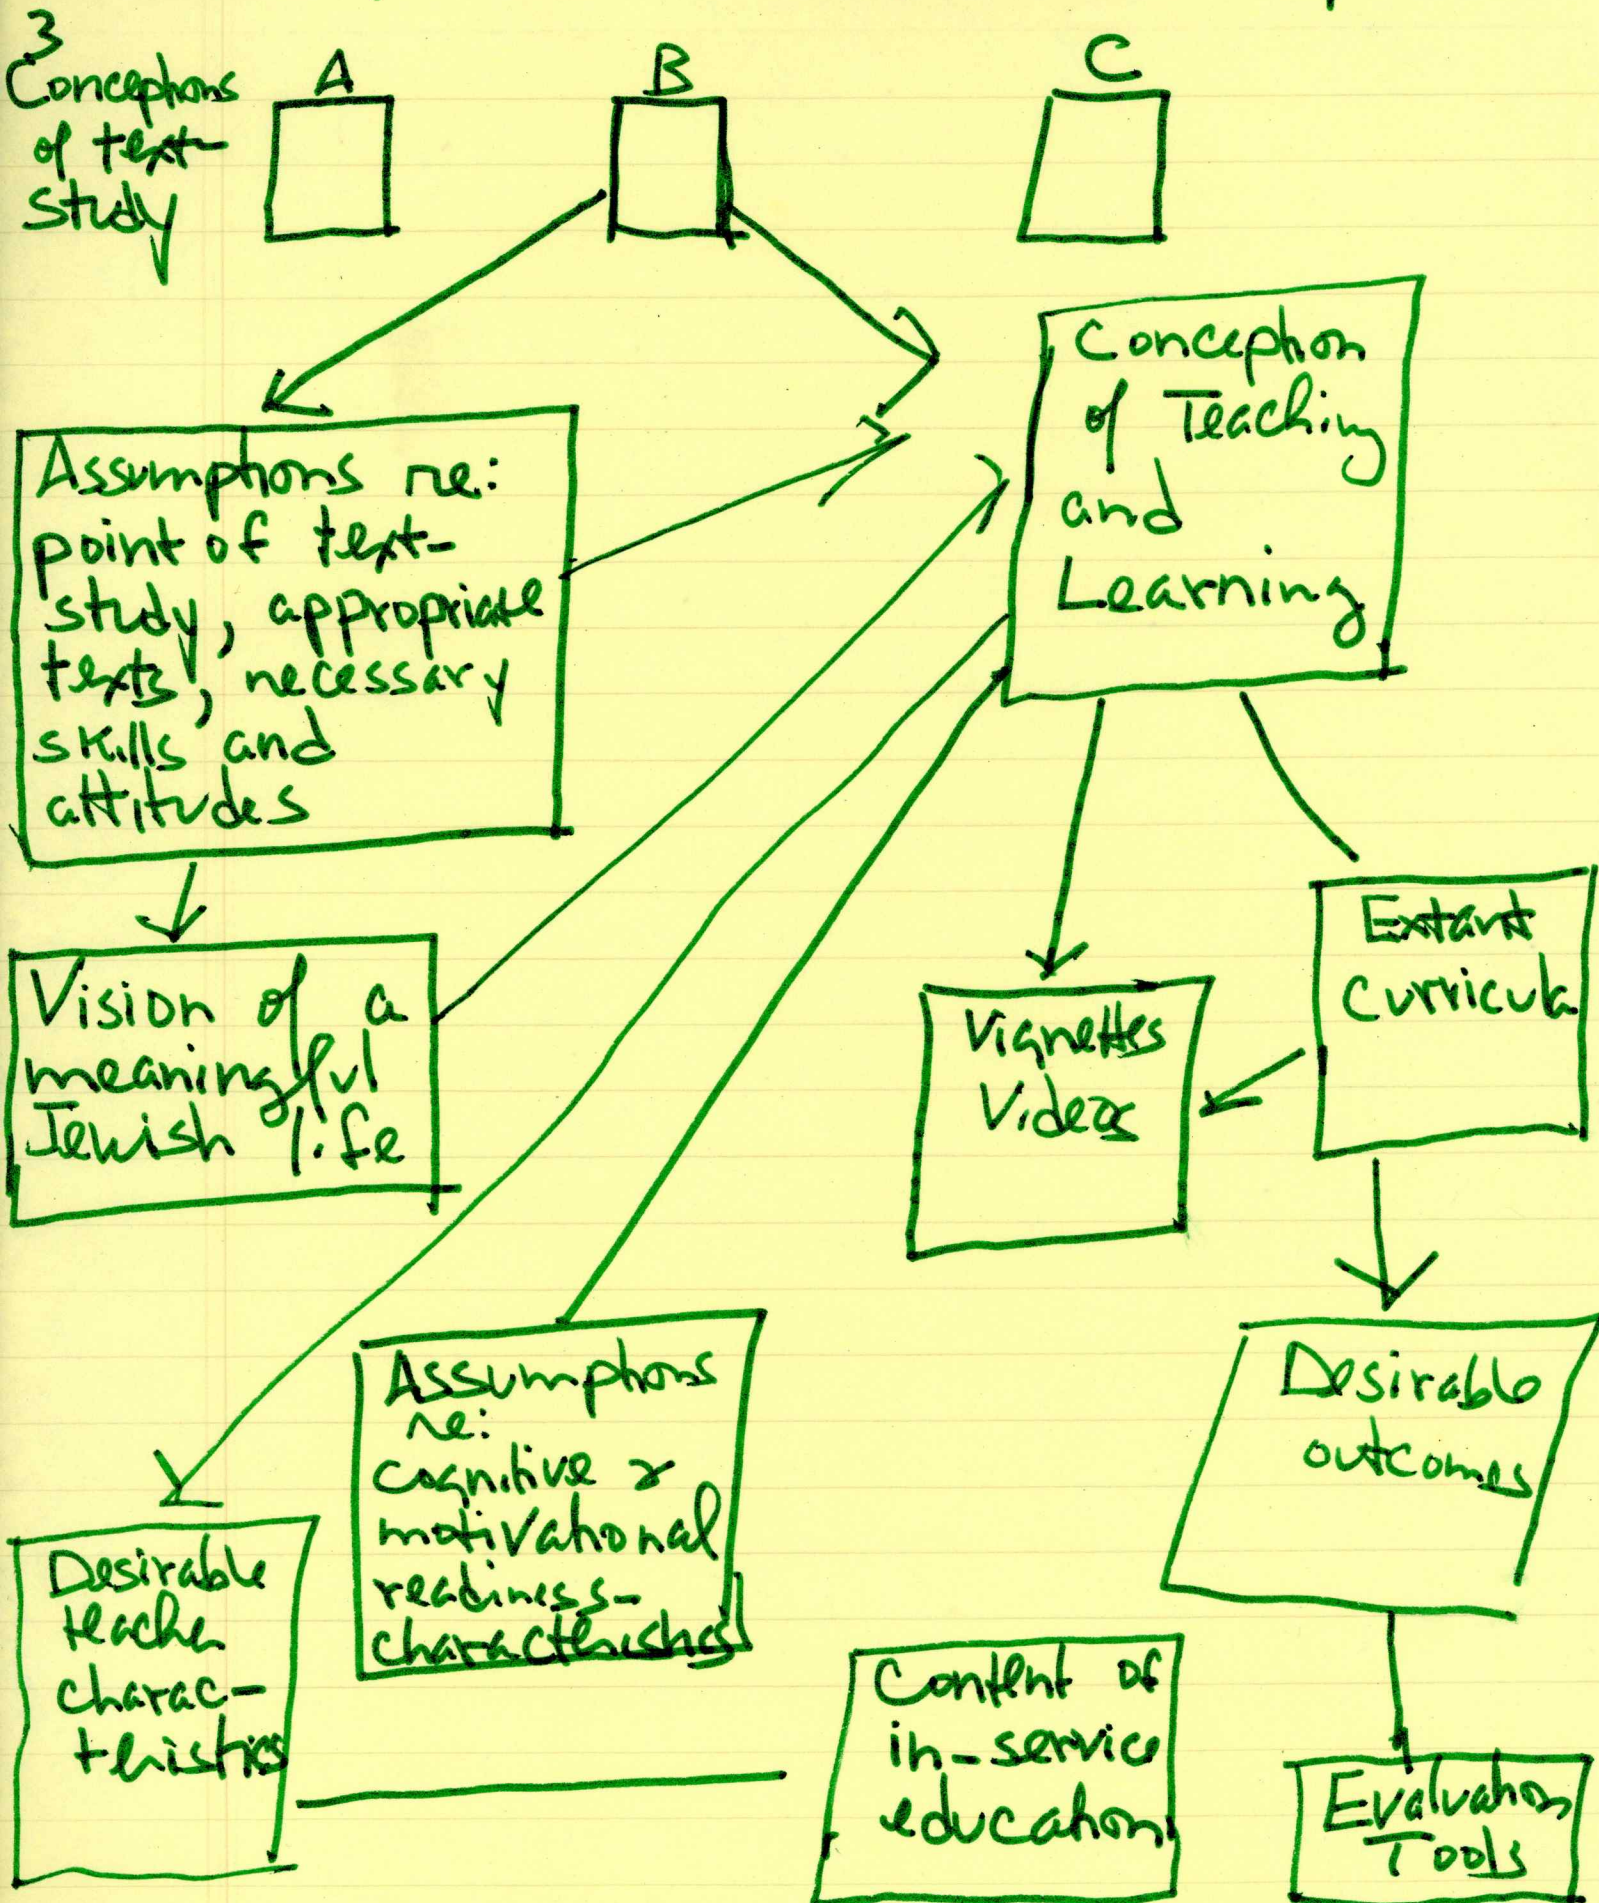 3
Conceptions
of text-
study
A
B
C
Conception
of Teaching
and
Learning
Assumptions re:
point of text-
study, appropriate
texts, necessary
skills and
attitudes
Vision of a
meaningful
Jewish life
Vignettes
Videos
Extant
Curricula
Assumptions
re:
cognitive &
motivational
readiness-
characteristics
Desirable
outcomes
Desirable
teacher
charac-
teristics
Content of
in-service
education
Evaluation
Tools